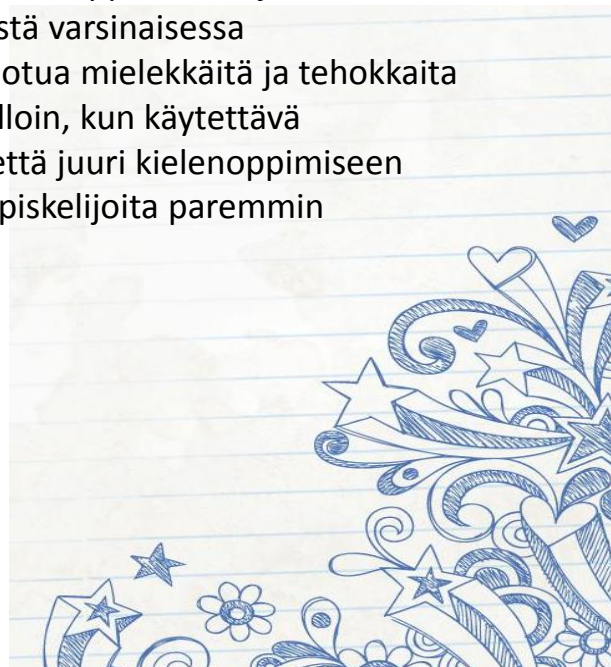 stä varsinaisessa
otua mielekkäitä ja tehokkaita
lloin, kun käytettävä
että juuri kielenoppimiseen
piskelijoita paremmin